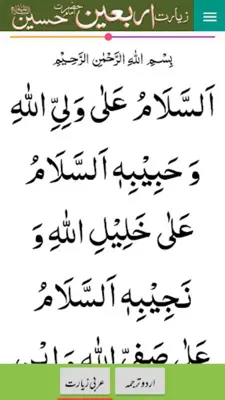 زیارت اربعین حضرت حسین
بِسْمِ اللهِ الرَّحْمٰنِ الرَّحِیْمِ
اَلسَّلَامُ عَلٰی وَلِیِّ اللهِ
وَ حَبِیْبِهٖ اَلسَّلَامُ
عَلٰی خَلِیْلِ اللهِ وَ
نَجِیْبِهٖ اَلسَّلَامُ
عَلٰی صَفِیِّ اللهِ وَ ابْنِ
عربی زیارت
اردو ترجمہ